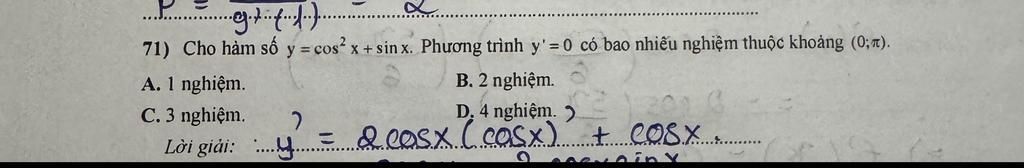 71) Cho hàm số y = cos² x + sin x. Phương trình y' = 0 có bao nhiêu nghiệm thuộc khoảng (0;π).
A. 1 nghiệm. B. 2 nghiệm.
C. 3 nghiệm. D. 4 nghiệm.
Lời giải: y' = 2cosx.(cosx)' + cosx.